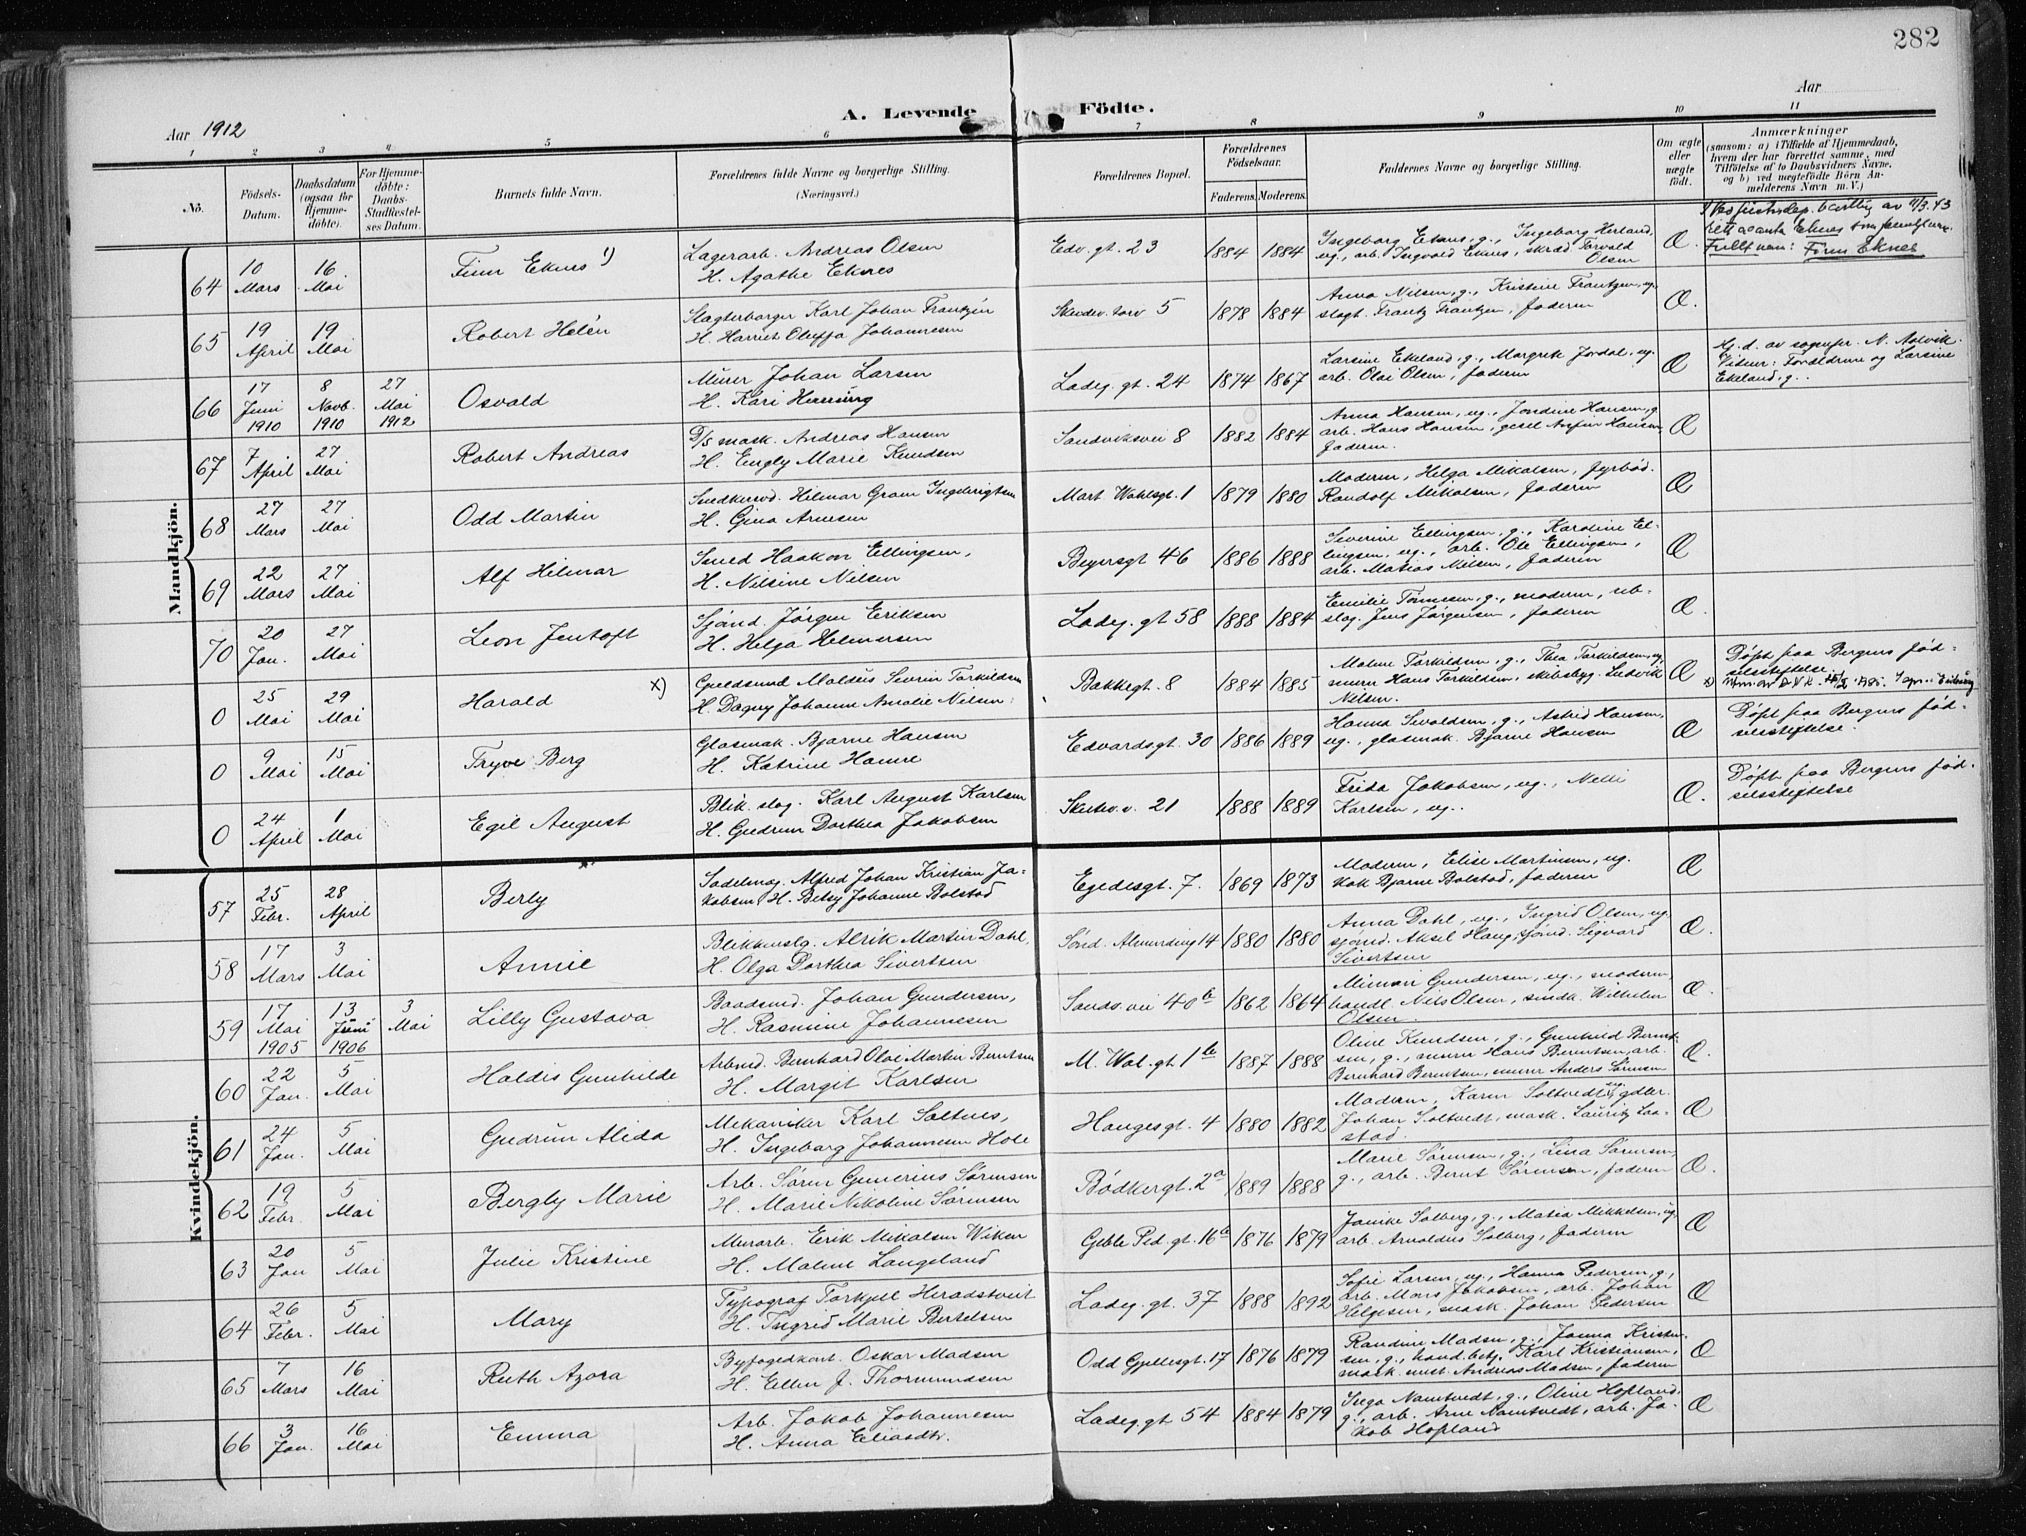 282
Aar 1912
A. Levende Födte.
Aar
1 2 3 4 5 6 7 8 9 10 11
No.
Födsels-Datum.
Daabsdatum (ogsaa for Hjemmedöbte).
For Hjemmedöbte: Daabs-Stadfestelses Datum.
Barnets fulde Navn.
Forældrenes fulde Navne og borgerlige Stilling. (Næringsvei.)
Forældrenes Bopæl.
Forældrenes Födselsaar.
Faderens. Moderens.
Faddernes Navne og borgerlige Stilling.
Om ægte eller uægte födt.
Anmærkninger (saasom: a) i Tilfælde af Hjemmedaab, hvem der har forrettet samme, med Tilföielse af to Daabsvidners Navne, og b) ved uægtefödte Börn Anmelderens Navn m. V.)
Mandkjön.
64 10 Mars 16 Mai Finn Eknes 1) Lagerarb. Andreas Olsen H. Agathe Eknes Edv. gt. 23 1884 1884 Ingeborg Eknes, g., Ingeborg Herland, ug., arb. Ingvald Eknes, skræd. Torvald Olsen Æ. Fullt navn: Finn Eknes
65 19 April 19 Mai Robert Helén Slagterborger Karl Johan Frantzen H. Harriet Oleffa Johannesen Skudev. torv 5 1878 1884 Anna Nilsen, g., Kristine Frantzen, ug. slagt. Frantz Frantzen, faderen Æ.
66 17 Juni 1910 8 Novb. 1910 27 Mai 1912 Osvald Murer Johan Larsen H. Kari Henning Ladeg. gt. 24 1874 1867 Larsine Ekeland, g., Margrete Jordal, ug. arb. Olai Olsen, faderen Æ Hj. d. av sognepr. N. Aalvik. Vidner: Forældrene og Larsine Ekeland, g.
67 7 April 27 Mai Robert Andreas D/s mask. Andreas Hansen H. Engly Marie Knudsen Sandviksvei 8 1882 1884 Anna Hansen, ug., Jondine Hansen, g. arb. Hans Hansen, gesel Anfin Hansen, faderen. Æ
68 27 Mars 27 Mai Odd Martin Snedkersv. Hilmar Gram Ingebrigtsen H. Gina Arnesen Mart. Wahlsgt. 1 1879 1880 Moderen, Helga Mikalsen, fyrbød. Randolf Mikalsen, faderen Æ
69 22 Mars 27 Mai Alf Hilmar Smed Haakon Ellingsen, H. Nilsine Nilsen Beyersgt 46 1886 1888 Severine Ellingsen, g., Karoline Ellingsen, ug., arb. Ole Ellingsen, arb. Matias Nilsen, faderen Æ
70 20 Jan. 27 Mai Leon Jentoft Sjømd. Jörgen Eriksen H. Helga Helmersen Ladeg. gt 58 1888 1884 Emilie Tønnesen, g., moderen, ubslag. Jens Jørgensen, faderen Æ
0 25 Mai 29 Mai Harald x) Guldsmed Maldus Severin Torkildsen H. Dagny Johanne Amalie Nilsen Bakkegt. 8 1884 1885 Malene Torkildsen, g., Thea Torkildsen, ug, murer Hans Torkildsen, skibsbygg. Ludvik Nilsen. Æ Døpt paa Bergens fødselsstiftelse.
0 9 Mai 15 Mai Tryve Berg Glasmak. Bjarne Hansen H. Katrine Hamre Edvardsgt. 30 1886 1889 Hanna Sevaldsen, g., Astrid Hansen, ug., glasmak. Bjarne Hansen Æ Døpt paa Bergens fødselsstiftelse.
0 24 April 1 Mai Egil August Blik. slag. Karl August Karlsen H. Gudrun Dorthea Jakobsen Skutev. v. 21 1888 1889 Frida Jakobsen, ug., Nelli Karlsen, ug. Æ. Døpt paa Bergens fødselsstiftelse
Kvindekjön.
57 25 Febr. 28 April Berly Sadelmag. Alfred Johan Kristian Jakobsen H. Betsy Johanne Bolstad Egedesgt. 7. 1869 1873 Moderen, Elise Martinsen, ug. kok Bjarne Bolstad, faderen Æ
58 17 Mars 3 Mai Annie Blikkenslg. Alrik Martin Dahl, H. Olga Dorthea Sivertsen Sønd. Almending 14 1880 1880 Anna Dahl, ug., Ingrid Olsen, ug. sjømd. Aksel Haug, sjømd. Sigvard Sivertsen Æ.
59 17 Mai 1905 13 Juni 1906 3 Mai Lilly Gustava Baadsmd. Johan Gundersen, H. Rasmine Johannesen Sands. vei 40 b 1862 1864 Mimmi Gundersen, ug., moderen handl. Nils Olsen, smdk. Wilhelm Olsen. Æ.
60 22 Jan. 5 Mai Haldis Gunhilde Arbmd. Bernhard Olai Martin Berntsen H. Margit Karlsen M. Wal. gt 1 b 1887 1888 Oline Knudsen, g., Gunhild Berntsen, g., murer Hans Berntsen, arb. Bernhard Berntsen, murer Anders Sørensen Æ.
61 24 Jan. 5 Mai Gudrun Alida Mekaniker Karl Saltnes, H. Ingeborg Johannesen Hole Haugesgt. 4 1880 1882 Moderen, Karen Soltvedt, ug., gdbr. Johan Soltvedt, mask. Lauritz Laastad. Æ
62 19 Febr. 5 Mai Bergly Marie Arb. Søren Gunerius Sørensen H. Marie Nikoline Sørensen Bødkergt. 2 a 1889 1888 Marie Sørensen, g., Lina Sørensen, g., arb. Bernt Sørensen, faderen Æ.
63 20 Jan 5 Mai Julie Kristine Murarb. Erik Mikalsen Wiken H. Malene Langeland Geble Ped. gt. 16 b 1876 1879 Janike Solberg, g., Matia Mikkelsen, ug, arb. Arnoldus Solberg, faderen Æ
64 26 Febr. 5 Mai Mary Typograf Torkjell Heradstveit H. Ingrid Marie Bertelsen Ladeg. gt. 37 1888 1892 Sofie Larsen, ug., Hanna Pedersen, g., arb. Mons Jakobsen, arb. Johan Helgesen, mask. Johan Pedersen Æ
65 7 Mars 16 Mai Ruth Azora Byfogedkont. Oskar Madsen H. Ellen J. Thormundsen Odd Gjellesgt. 17 1876 1879 Randine Madsen, g., Janna Kristiansen, g., hand. betj. Karl Kristiansen, mask. mest. Andreas Madsen, faderen Æ
66 3 Jan. 16 Mai Emma Arb. Jakob Johannesen H. Anna Eliasdtr. Ladeg. gt 54 1884 1879 Inga Namtvedt, g., Oline Hopland, g., arb. Arne Namtvedt, arb. Jakob Hopland Æ